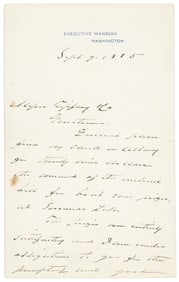 EXECUTIVE MANSION
WASHINGTON.
Sept. 9. 1885
Messrs Tiffany & Co
Gentlemen:
Enclosed please
find my check on Albany
for twenty nine dollars
the amount of the enclosed
bill for boat
at Saranac Lake.
The
satisfactory and I am under
obligations to you for the
promptness and good